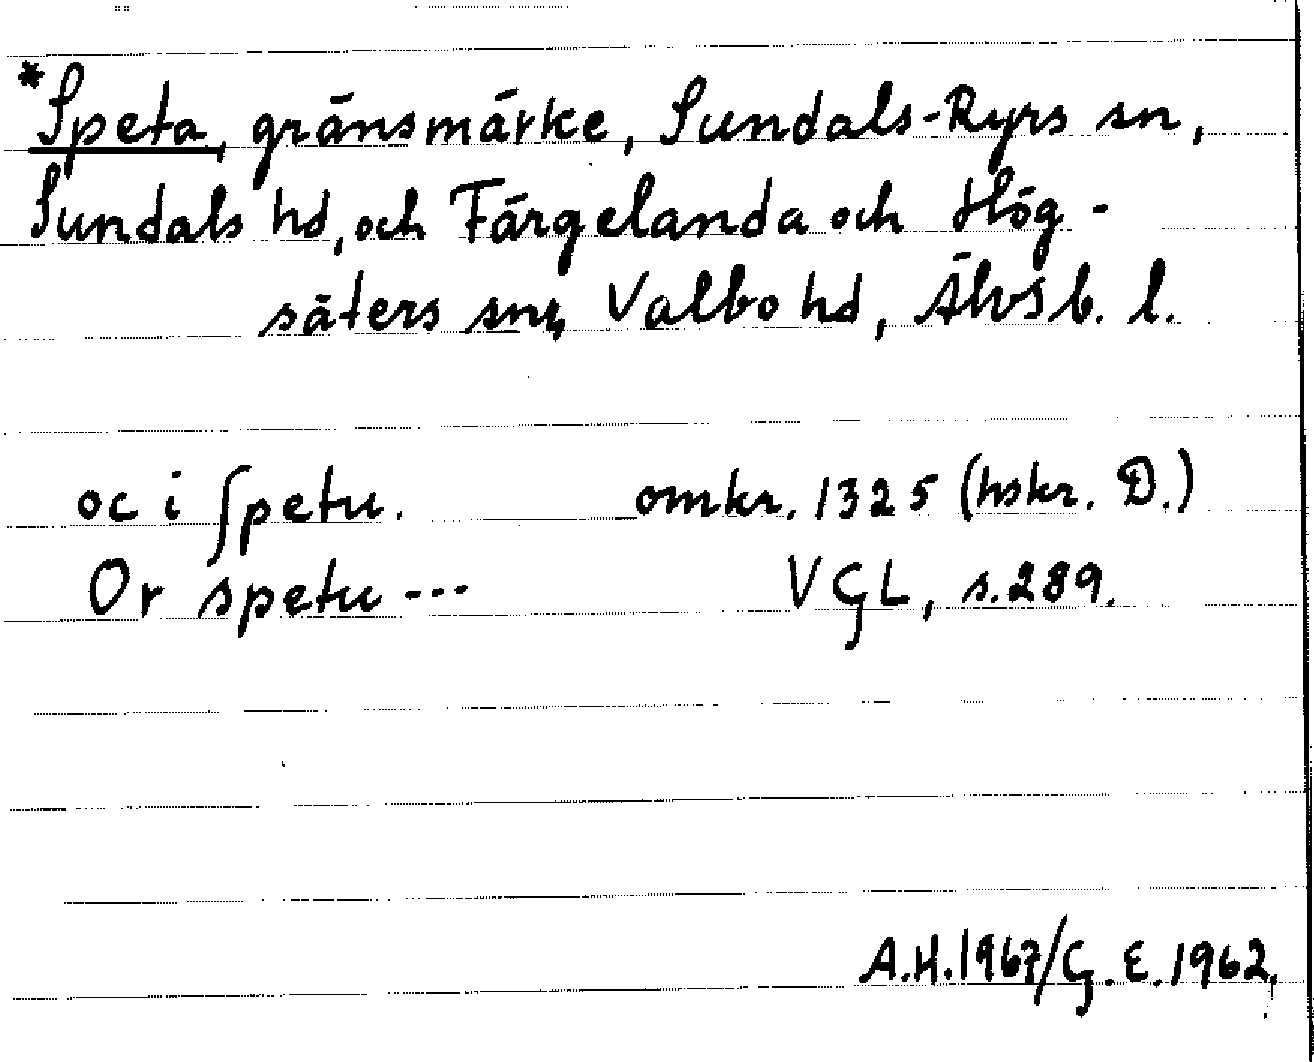 *Speta, gränsmärke, Sundals-Ryrs sn,
Sundals hd, och Färgelanda och Hög-
säters snr, Valbo hd, Älvsb. l.
oc i ſpetu. omkr. 1325 (hskr. D.)
Or spetu --- VGL, s. 289.
A.H. 1967/G.E. 1962.